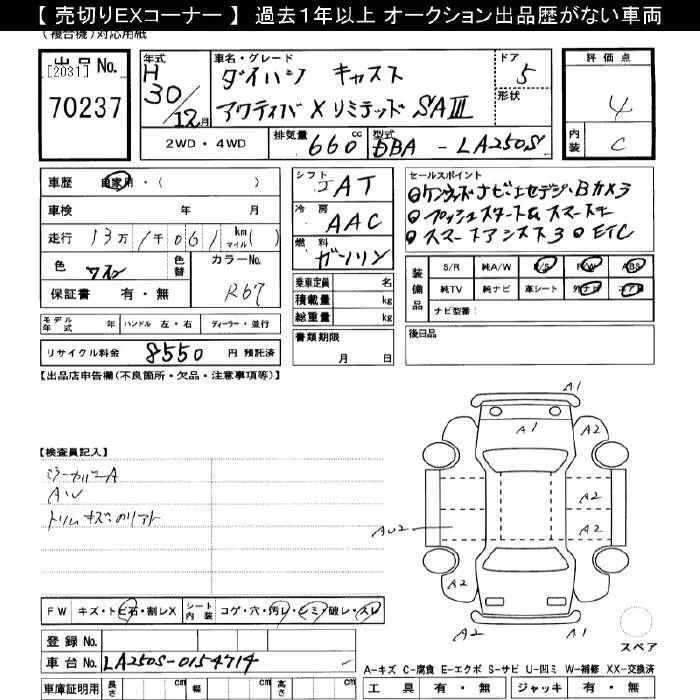 【 売切りEXコーナー 】 過去１年以上 オークション出品歴がない車両
(複合機)対応用紙
出品No.
[2031]
70237
年式
H
30/12月
車名・グレード
ダイハツ キャスト
アクティバ X リミテッド SAⅢ
ドア
5
形状
評価点
4
内装
C
2WD・4WD
排気量
660 cc
型式
DBA - LA250S
車歴
自家用・( )
車検 年 月
走行 13万1千061 km マイル( )
色
ワイン
色替
カラーNo.
R67
保証書 有・無
シフト
IAT
冷房
AAC
燃料
ガソリン
乗車定員 名
積載量 kg
総重量 kg
セールスポイント
◎ケンウッドナビ・セグ・Bカメラ
◎プッシュスタート&スマートキー
◎スマートアシスト3◎ETC
装備品
S/R 純A/W P/S P/W ABS
純TV 純ナビ 革シート 外ナビ エアB
ナビ型番:
モデル年式 年
ハンドル 左・右
ディーラー・並行
リサイクル料金 8550 円 預託済
書類期限
月 日
後日品
【出品店申告欄(不良箇所・欠品・注意事項等)】
【検査員記入】
ミラーカバーA
AU
トリムキズ:のリアト
A1
A1
A2
A2
A2
AU2
A2
A2
A2
A1
スペア
FW キズ・トビ石・割レX
シート内装 コゲ・穴・汚レ・シミ・破レ・スレ
登録No.
車台No. LA250S-0154714
車庫証明用 長さ cm 幅 cm 高さ cm
A-キズ C-腐食 E-エクボ S-サビ U-凹ミ W-補修 XX-交換済
工具 有・無 ジャッキ 有・無